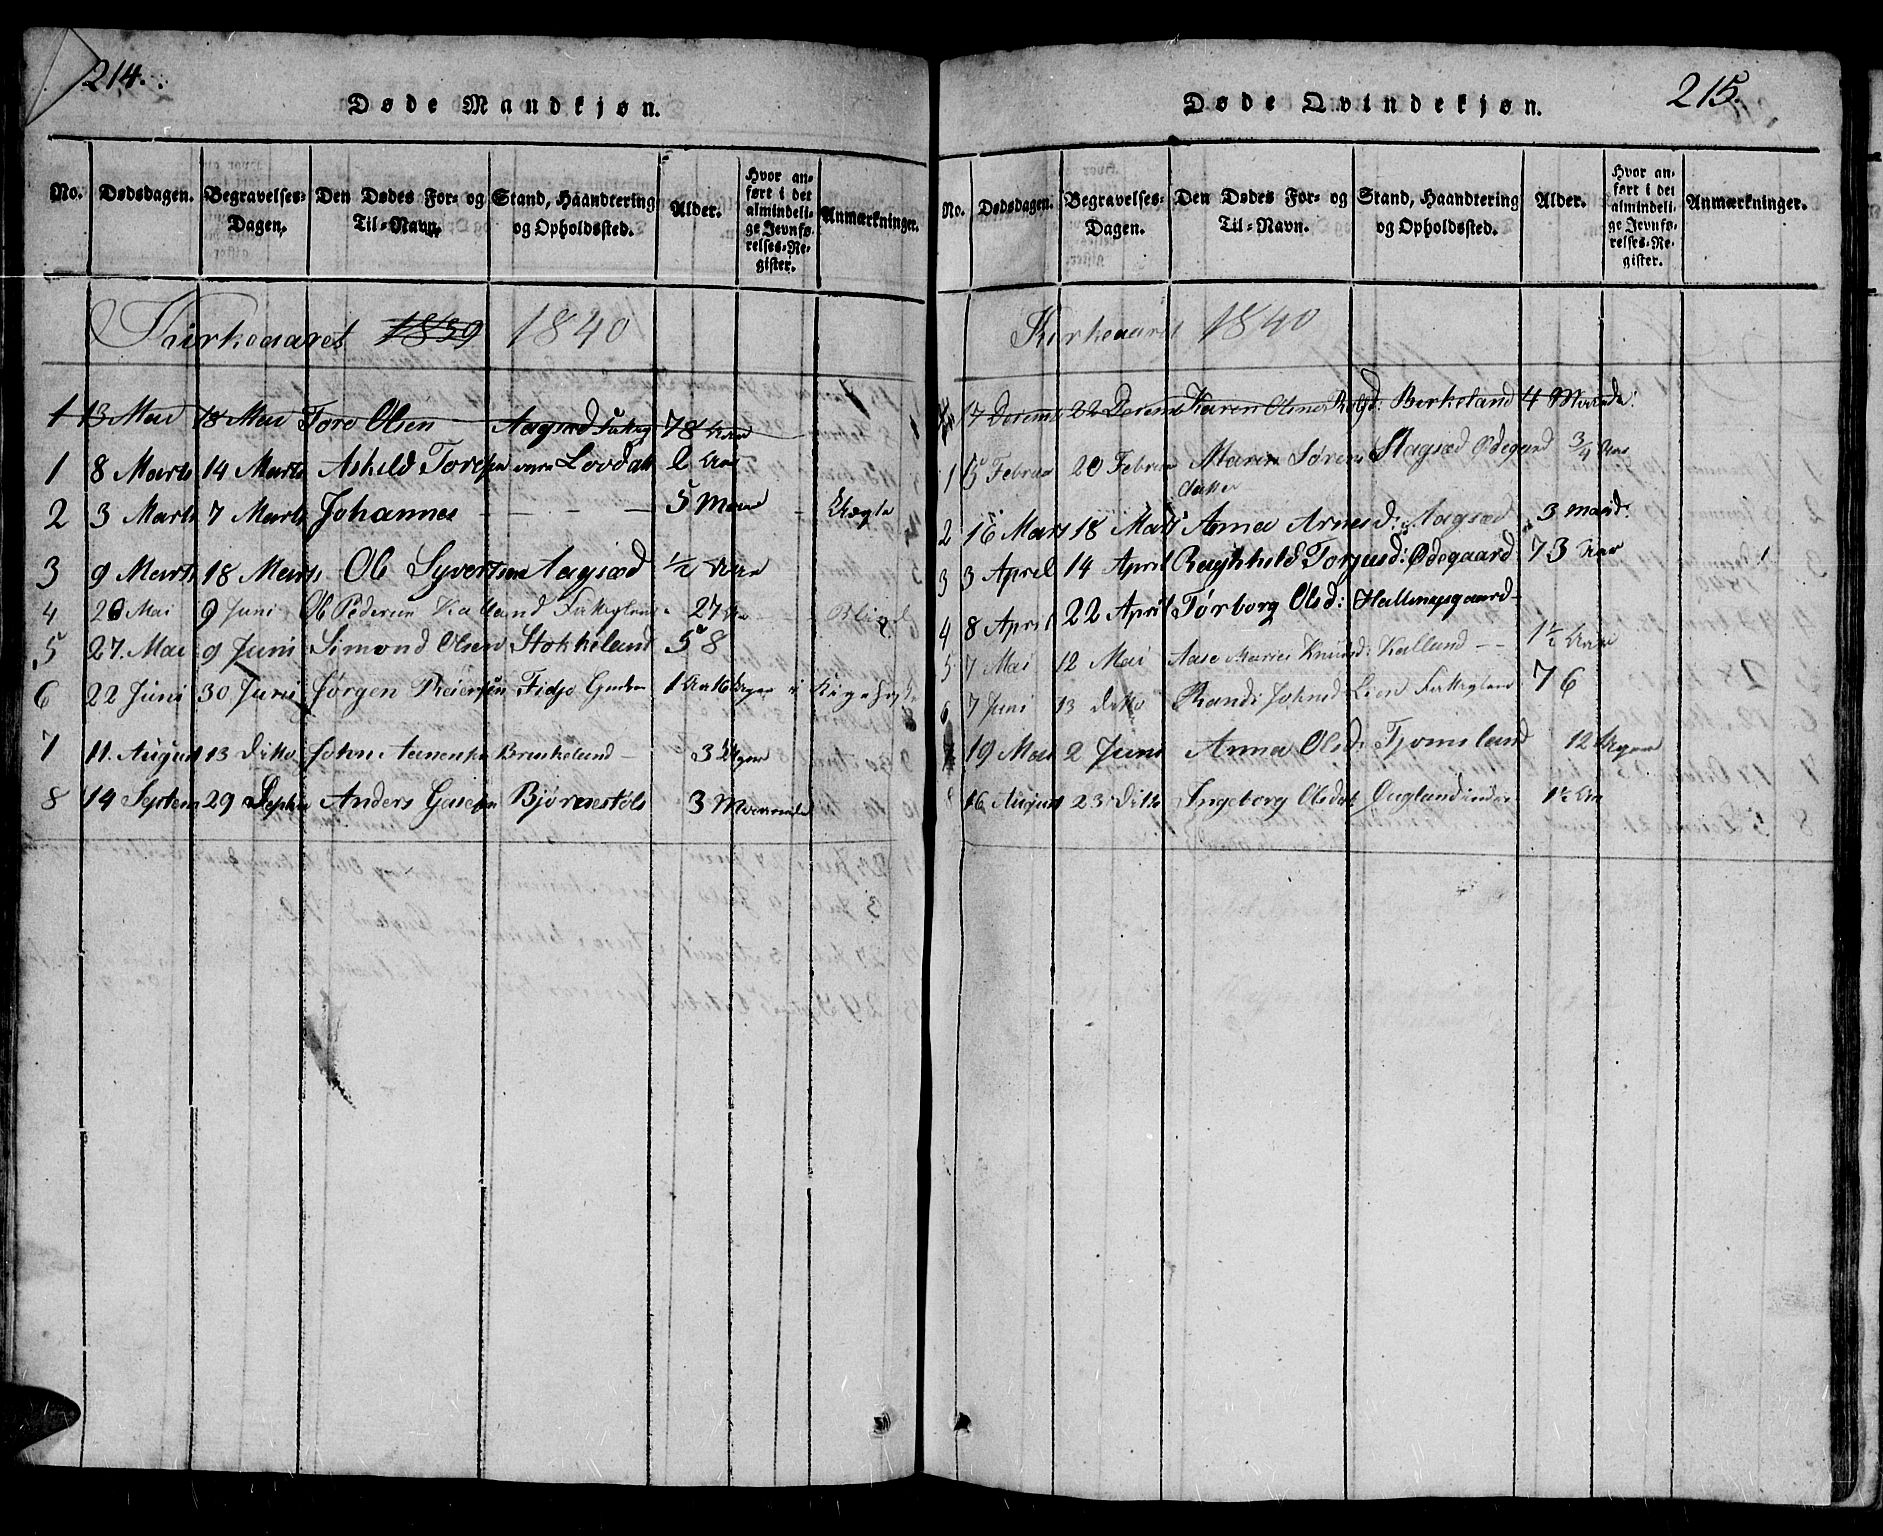 214.
Døde Mandkjøn.
No. Dødsdagen. Begravelses-Dagen. Den Dødes For- og Til-Navn. Stand, Haandtering og Opholdssted. Alder. Hvor anført i det almindelige Jevnførelses-Register. Anmærkninger.
Kirkeaaret 1839 1840
1 13 Mai 18 Mai Tore Olsen Aagsæd 78 Aar
1 8 Marts 14 Marts Askild Lovdal Aar
2 3 Marts 7 Marts Johannes - - - - 5 - Uægte
3 9 Marts 18 Marts Ole Syvertsen Aagsæd 1/2 Aar
4 26 Mai 9 Juni Ole Pedersen Kalland 27 Aar
5 27. Mai 9 Juni Simond Olsen Stokkeland 58
6 22 Juni 30 Juni Jørgen Fidje 1 Aar
7 11. August 13 Ditto John 3 Uger
8 14 Septem 29 Anders Bjørnestøls 3 Maaneder
215.
Døde Qvindekjøn.
No. Dødsdagen. Begravelses-Dagen. Den Dødes For- og Til-Navn. Stand, Haandtering og Opholdssted. Alder. Hvor anført i det almindelige Jevnførelses-Register. Anmærkninger.
Kirkeaaret 1840
17 Decemb 22 Decemb Karen Birkeland 4
1 Februar 20 Februar Maren Sørens Ødegaard 3/4 Aar
datter
2 16 Mars 18 Mars Anna Arnesd: Aagsæd 3
3 3 April 14 April Raghhild Torjusd: Ødegaard 73 Aar
4 8 April 22 April Torborg Olsd:
5 7 Mai 12 Mai Aase Marie Knudsd: Kalland - - 1 1/2 Aar
6 7 Juni 13 Ditto Randi Johnsd Lien 76
7 19 Mai 2 Juni Anna Olsd: Tjomsland 12 Uger
8 16 August 23 Ditto Ingeborg Olsdat Øugland 1 1/2 Aar